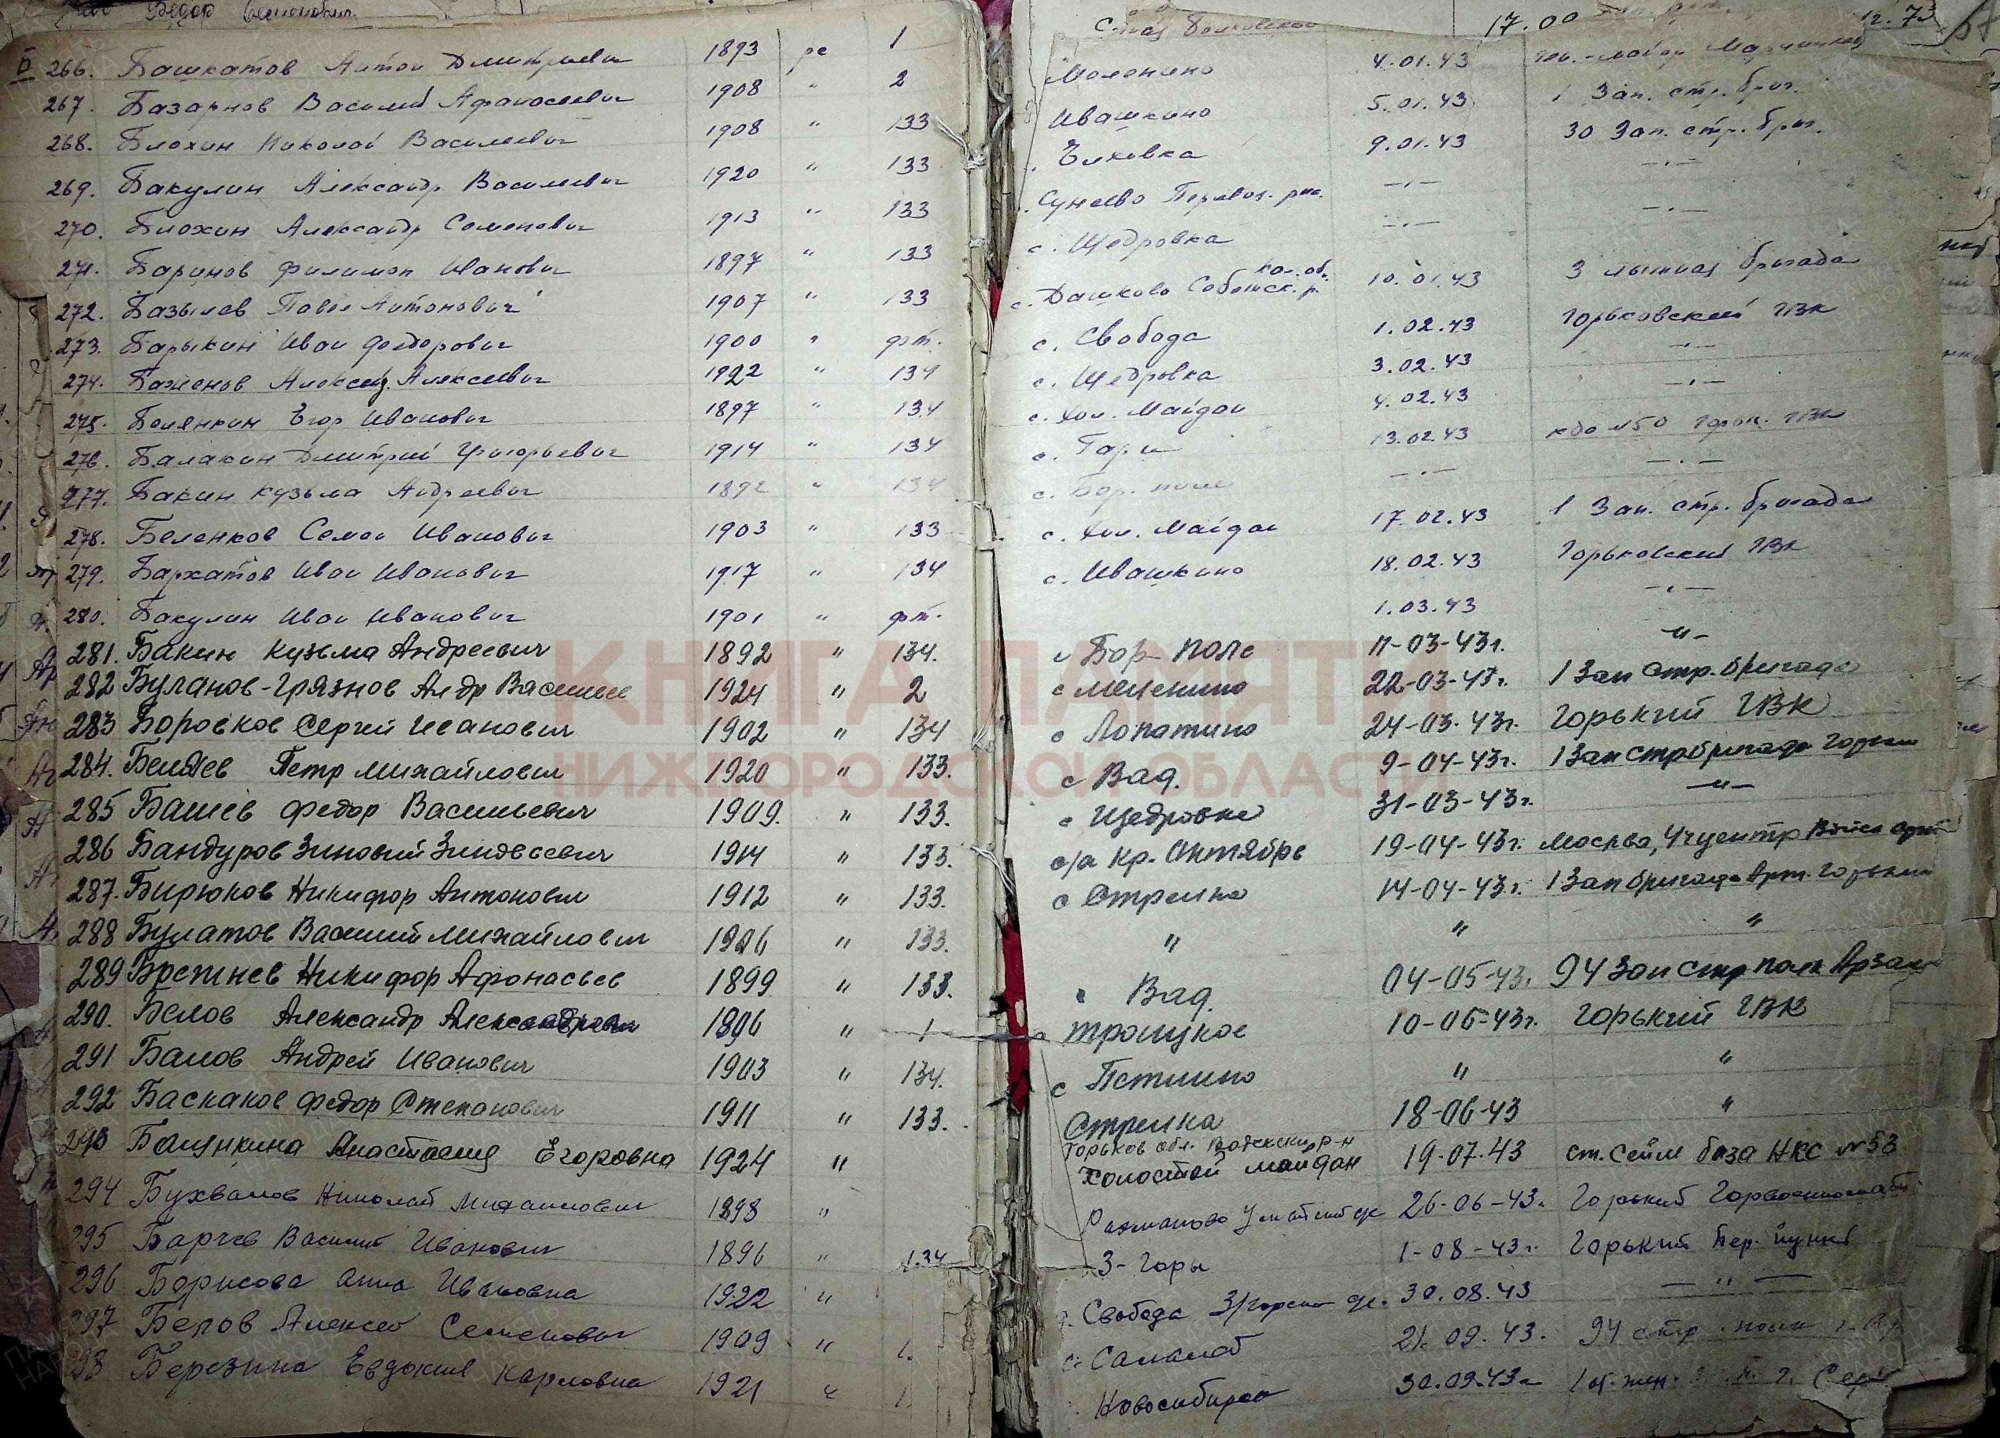 Федор Семенович 17.00
Б 266. Башкатов Антон Дмитриевич 1893 ря 1 Моленино 4.01.43
267. Базарнов Василий Афанасьевич 1908 " 2 Ивашкино 5.01.43 1 Зап. стр. бриг.
268. Блохин Николай Василевич 1908 " 133 Елховка 9.01.43 30 Зап. стр. бриг.
269. Бакулин Александр Василевич 1920 " 133 Сунеево Перевоз. р-на. —"— —"—
270. Блохин Александр Семенович 1913 " 133 с. Щедровка —"— —"—
271. Баринов Филимон Иванович 1897 " 133 с. Дашково Собинск. р. 10.01.43 3 лыжная бригада
272. Базылев Павел Антонович 1907 " 133 с. Свобода 1.02.43 Горьковский ГВК
273. Барыкин Иван Федорович 1900 " фт. с. Щедровка 3.02.43 —"—
274. Баженов Алексей Алексеевич 1922 " 134 с. Хол. Майдан 4.02.43 —"—
275. Белянкин Егор Иванович 1897 " 134 с. Гари 13.02.43 Горьк. ГВК
276. Балакин Дмитрий Григорьевич 1914 " 134 с. Бор. поле —"— —"—
277. Бакин Кузьма Андреевич 1892 " 134 с. Хол. Майдан 17.02.43 1 Зап. стр. бригада
278. Беленков Семен Иванович 1903 " 133 с. Ивашкино 18.02.43 Горьковский ГВК
279. Бархатов Иван Иванович 1917 " 134 1.03.43 —"—
280. Бакулин Иван Иванович 1901 " фт.
281. Бакин Кузьма Андреевич 1892 " 134. с Бор Поле 11-03-43г. —"—
282 Буланов-Грязнов Ал-др Василье 1924 " 2 с Меленино 22-03-43г. 1 Зап стр. бригада
283 Боровков Сергей Иванович 1902 " 134 с Лопатино 24-03-43г. Горький ГВК
284. Беляев Петр Михайлович 1920 " 133. с Вад. 9-04-43г. 1 Зап стр бригада Горький
285 Башев Федор Васильевич 1909. " 133. с Щедровка 31-03-43г. —"—
286 Бандуров Зиновий Зиновьевич 1914 " 133. с/а Кр. Октябрь 19-04-43г. Москва, Учцентр Войск арт
287. Бирюков Никифор Антонович 1912 " 133. с Стрелка 14-04-43г. 1 Зап бригада Арт. Горький
288 Булатов Василий Михайлович 1926 " 133. " " "
289 Брежнев Никифор Афонасьев 1899 " 133. " Вад. 04-05-43. 94 Зап Стр полк Арзам
290. Белов Александр Александрович 1896 " 1 Троицкое 10-06-43г. Горький ГВК
291 Балов Андрей Иванович 1903 " 134. с Петлино " "
292 Баскаков Федор Степанович 1911 " 133. Стрелка 18-06-43 "
293 Бащикина Анастасия Егоровна 1924 " Горьков обл. Вадский р-н Холостой майдан 19-07.43 ст. Сейм база НКС №53
294 Бухвалов Николай Михайлович 1898 " Рахманово 26-06-43г. Горький
295 Барчев Василий Иванович 1896 " 134 3-Горы 1-08-43г. Горький Пер. пункт
296 Борисова Анна Ивановна 1922 " Свобода 30.08.43 —"—
297 Белов Алексей Семенович 1909 " 1. 21.09.43. 94 стр. полк
298 Березина Евдокия Карловна 1921 " 1. Новосибирск 30.09.43г
КНИГА ПАМЯТИ
НИЖГОРОДСКОЙ ОБЛАСТИ